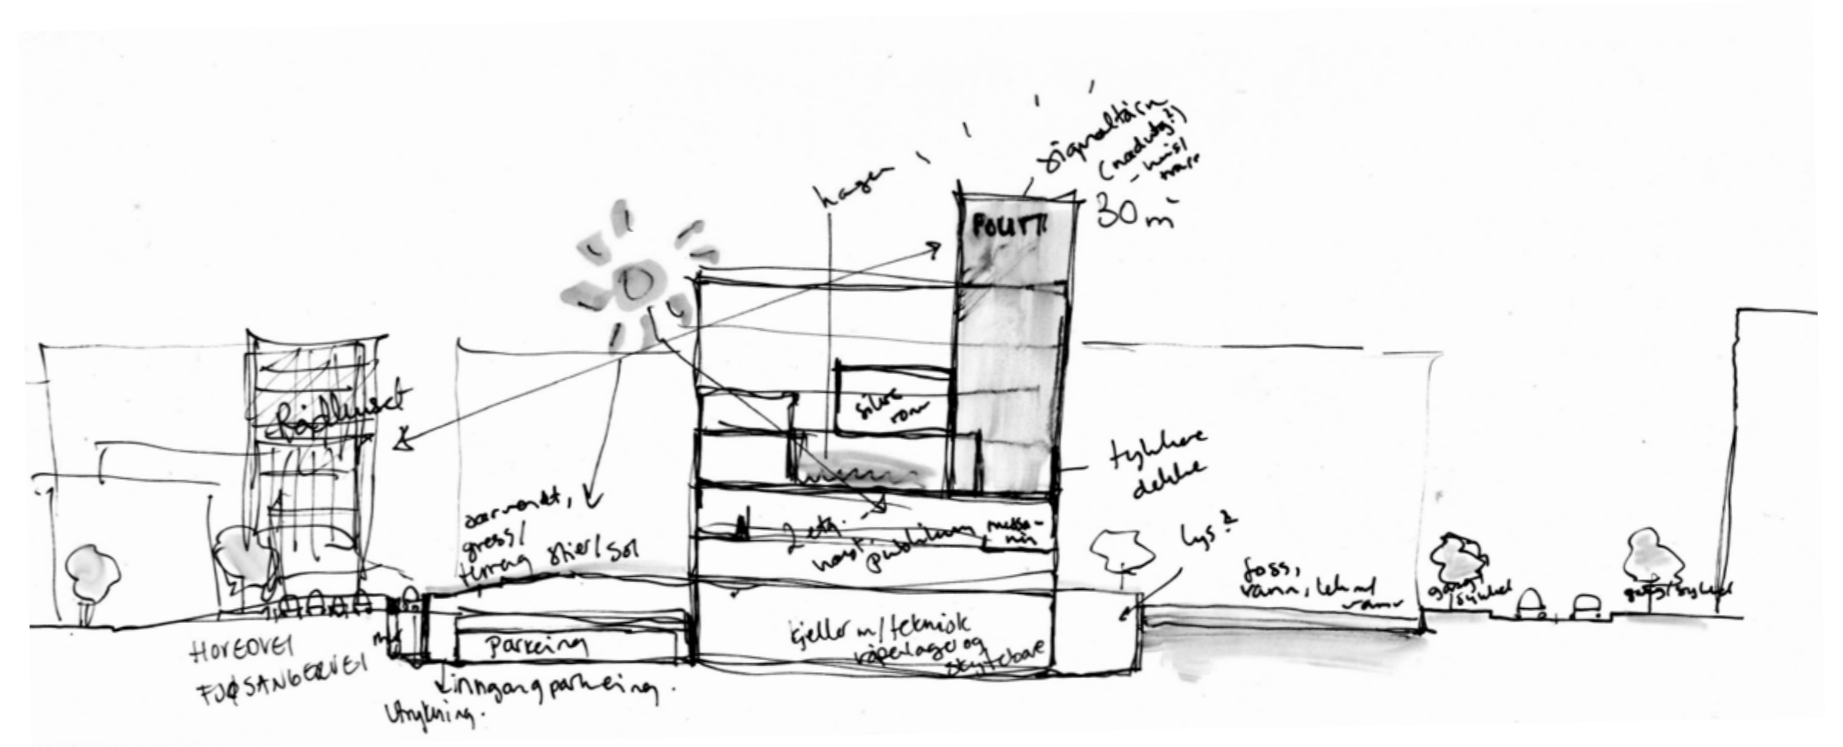 hagen
signaltårn
(nødvendig?)
30 m
POLITI
Rådhuset
stille
rom
tykkere
dekke
gress/
terreng stier/sol
2 etg.
publikum
messa-
nin
lys?
foss,
vann,
gang/
sykkel
gang/sykkel
HOVEDVEI
FUØSANGERVEI
Parkering
kjeller m/teknisk
våpenlager og
skytebane
inngang parkering.
Utrykning.